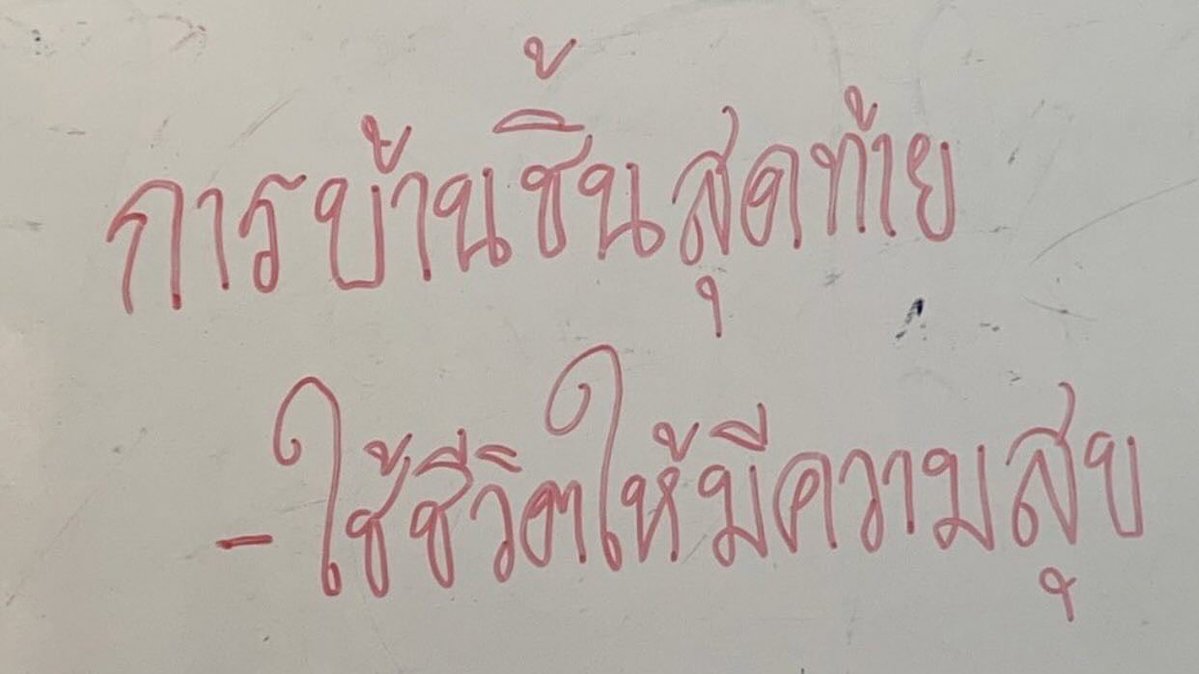 การบ้านชิ้นสุดท้าย
- ใช้ชีวิตให้มีความสุข